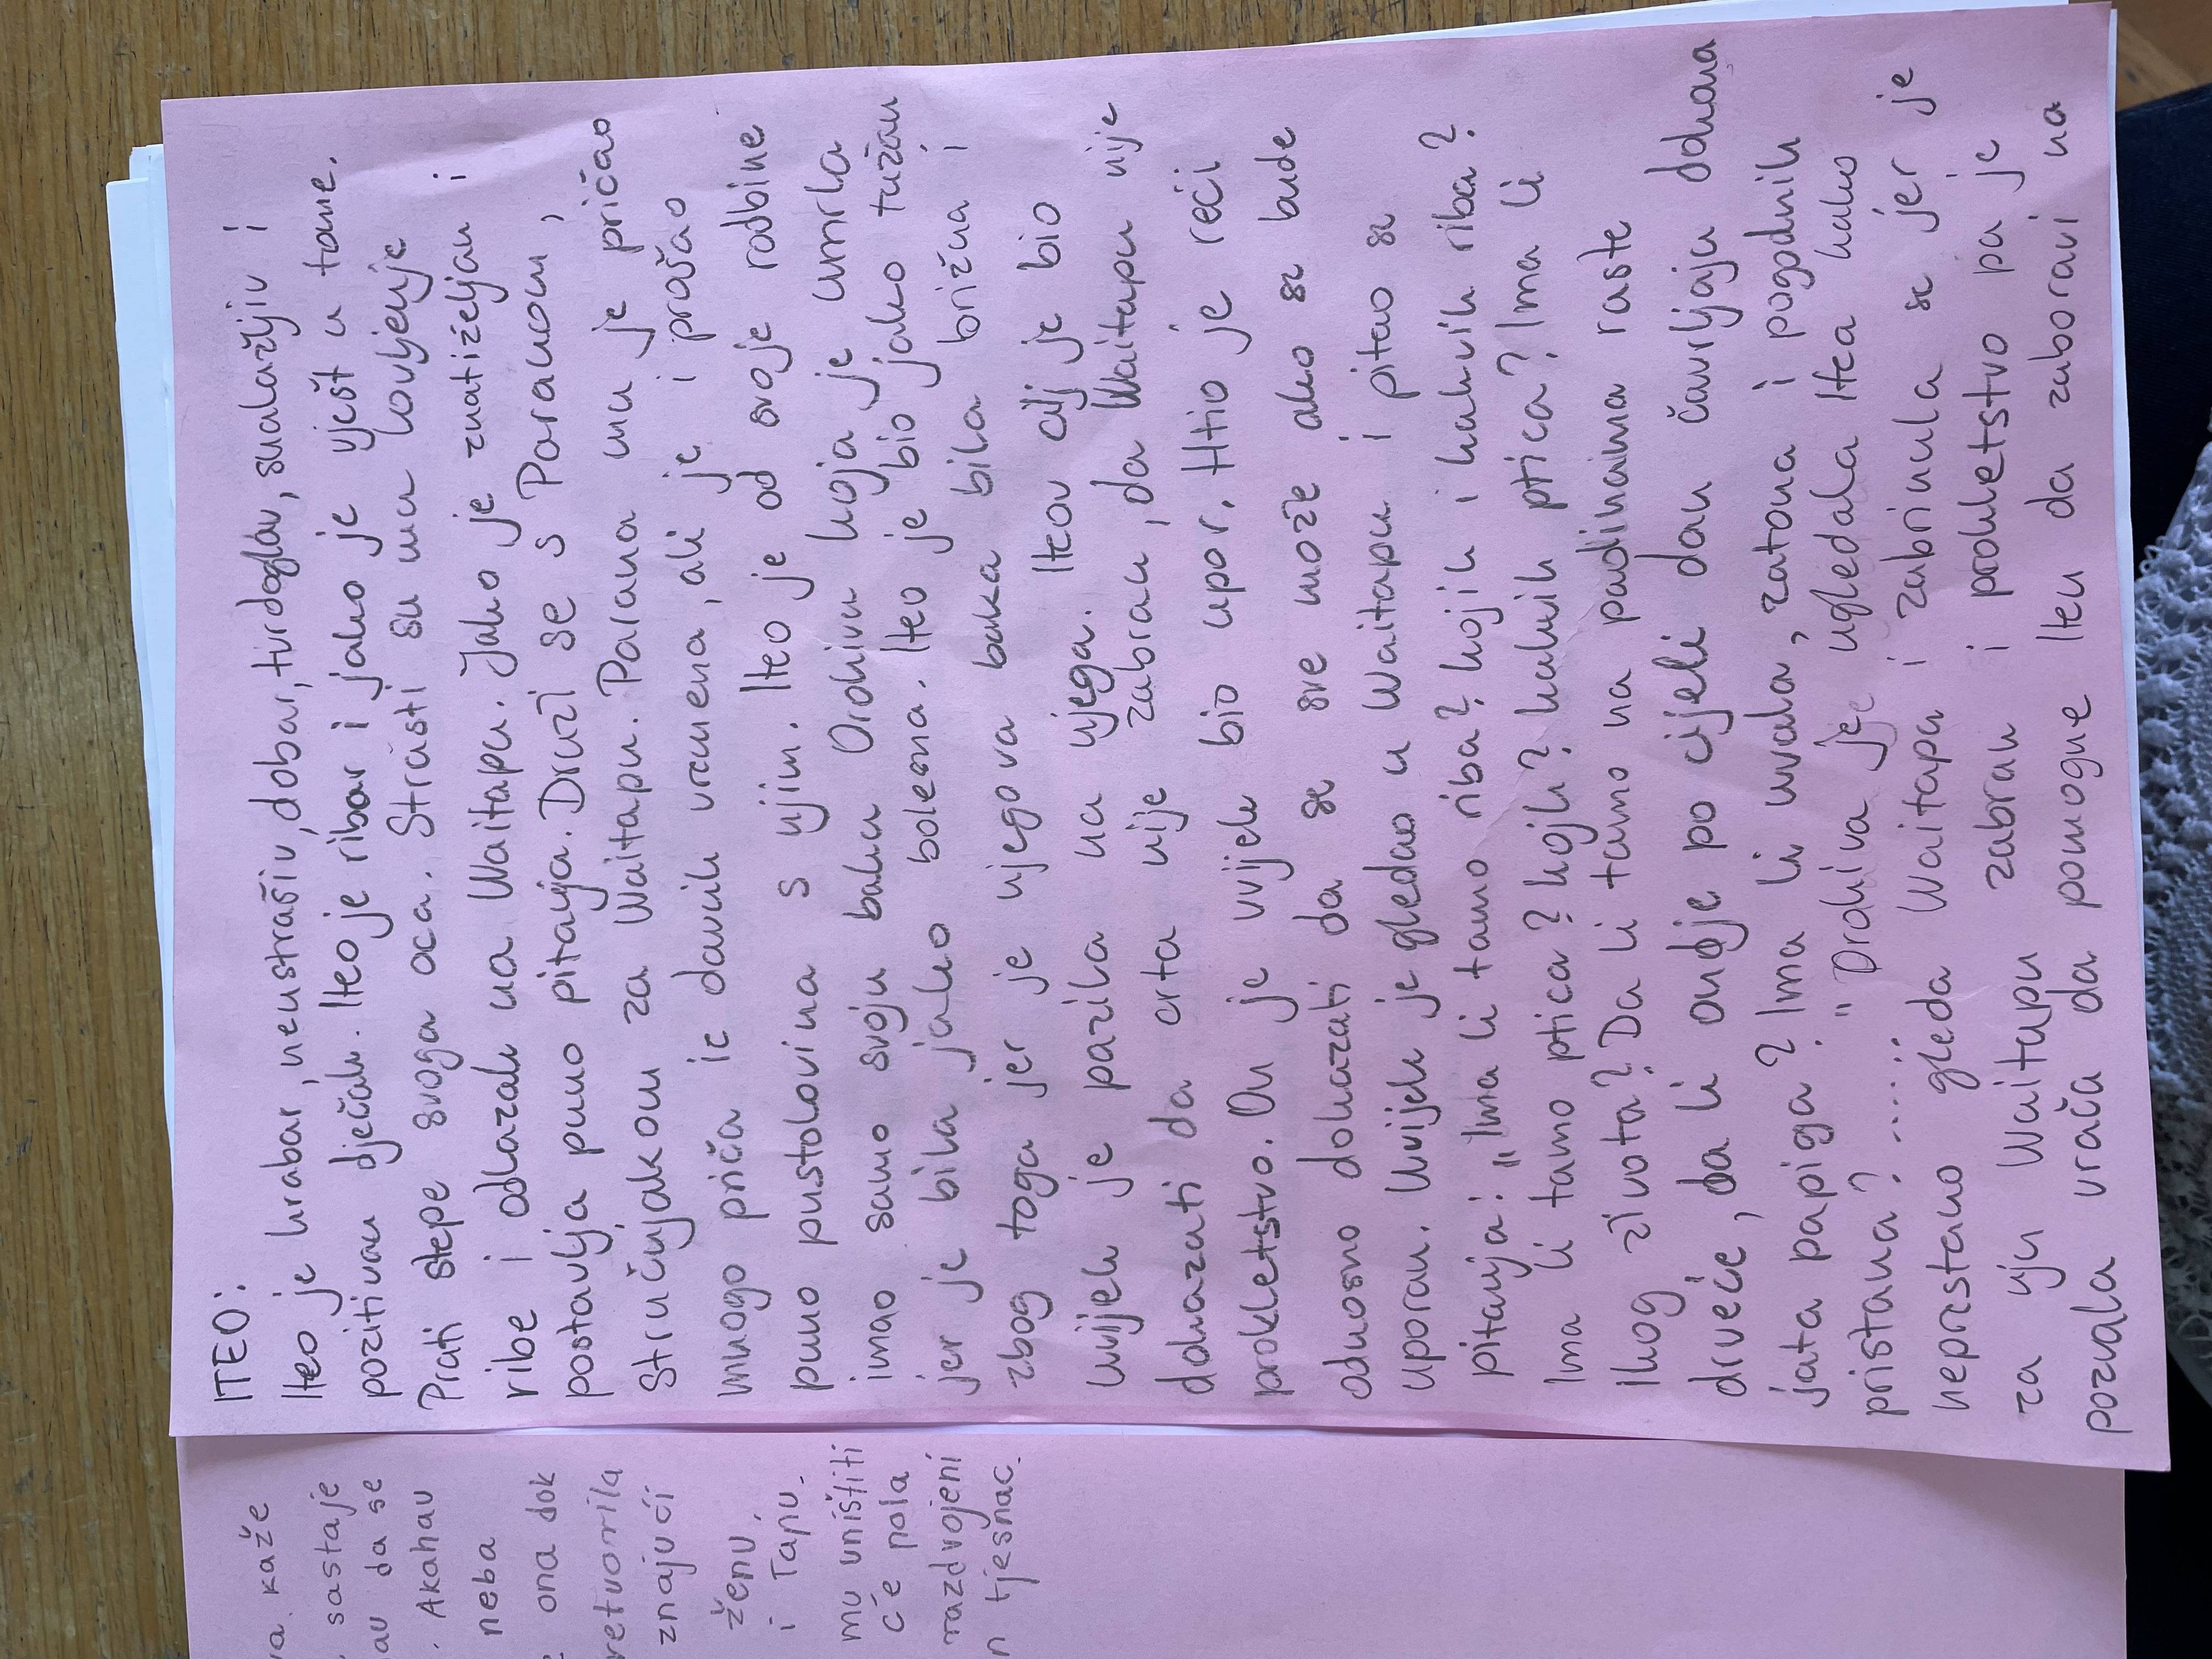 ITEO:
Iteo je hrabar, neustrašiv, dobar, turdoglav, snalažljiv i
pozitivan dječak. Iteo je ribar i jako je vješt u tome.
Prati stepe svoga oca. Strasti su mu lovljenje
ribe i odlazak na Waitapu. Jako je znatiželjan i
postavlja puno pitanja. Druži se s Paraunom,
stručnjakom za Waitapu. Parana mu je pričao
mnogo priča iz davnih vremena, ali je i prošao
puno pustolovina s njim. Iteo je od svoje rodbine
imao samo svoju baku Orohivu koja je umrla
jer je bila jako bolesna. Iteo je bio jako tužan
zbog toga jer je njegova baka bila brižna i
uvijek je pazila na njega. Iteov cilj je bio
dokazati da crta nije zabran, da Waitapu nije
prokletstvo. On je uvijek bio upor. Htio je reći
odnosno dokazati da se sve može ako se bude
uporan. Uvijek je gledao u Waitapu i pitao sa
pitanja: "Ima li tamo riba? kojih i kakvih riba?
Ima li tamo ptica? kojh? kakvih ptica? Ima li
ikog života? Da li tamo na padinama raste
drveće, da li ondje po cijeli dan čavrljaju
jata papiga? Ima li uvala, zatona i pogodnih
pristana? ....." Orohiva je ugledala Itea kako
neprestano gleda Waitapu i zabrinula se jer je
za nju Waitapu zabran i prokletstvo pa je
pozvala vrača da pomogne Iteu da zaboravi na
kaže
sastaje
da se
Akahau
neba
ona dok
znajući
ženu,
i Tapu.
mu uništiti
će pola
razdvojeni
tjesnac.